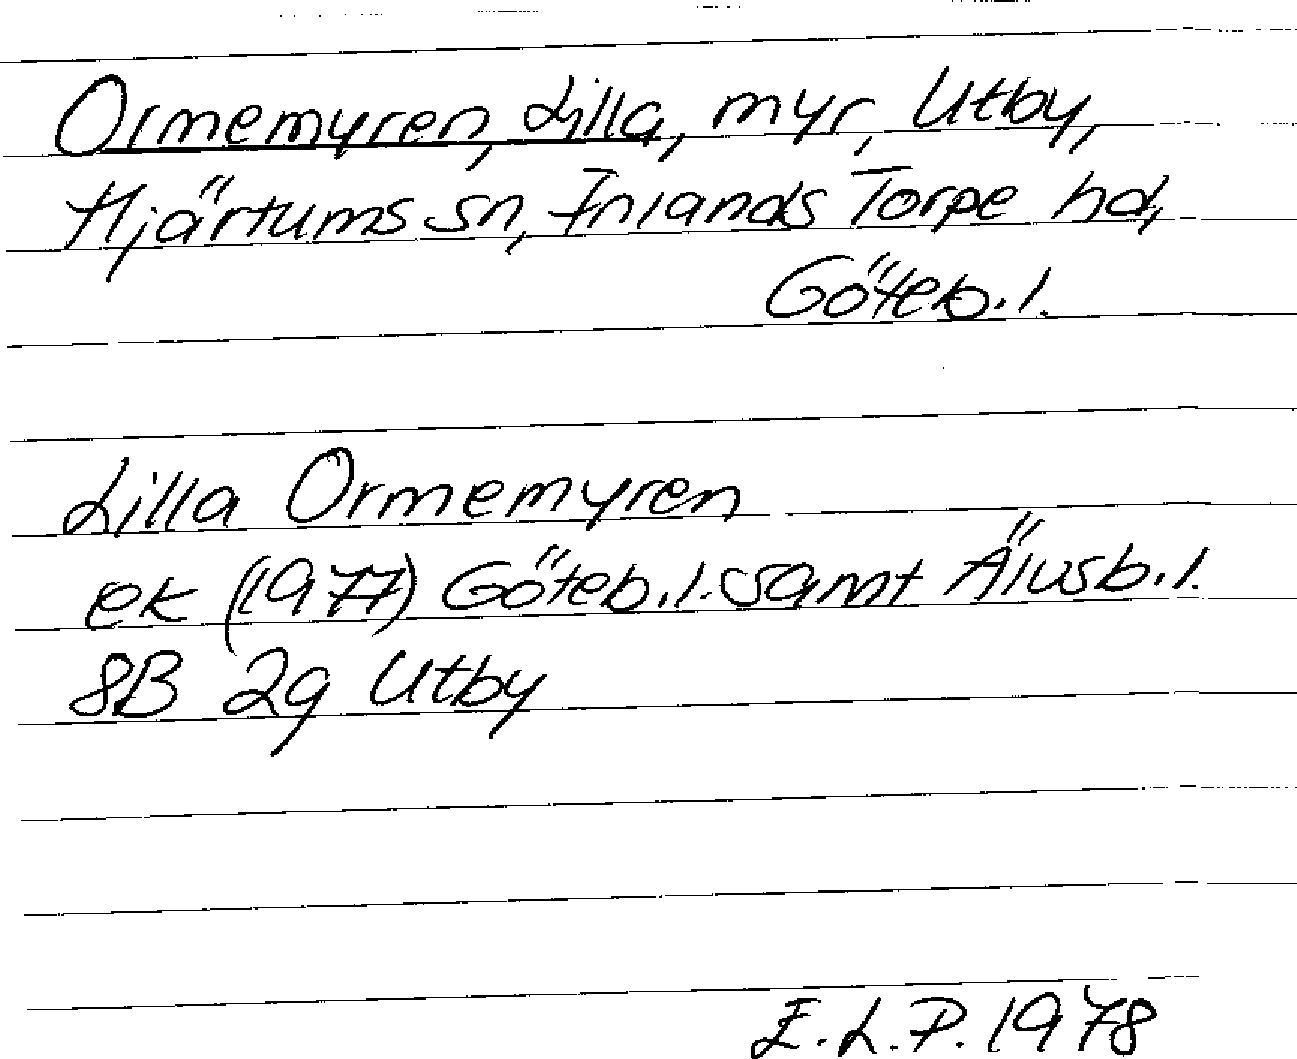 Ormemyren, Lilla, myr, Utby,
Hjärtums sn, Inlands Torpe hd,
Göteb.l.
Lilla Ormemyren
ek (1977) Göteb.l. samt Älvsb.l.
8B 2g Utby
E.L.P. 1978